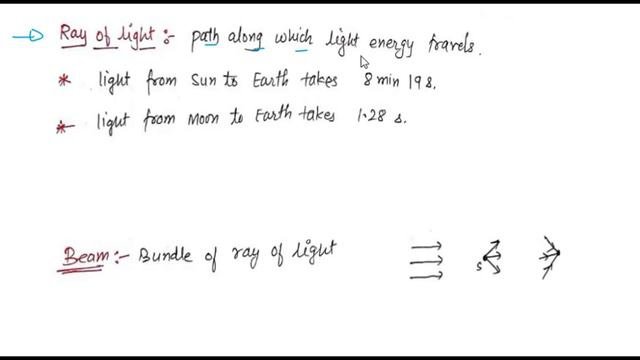 Ray of light :- path along which light energy travels.
* light from Sun to Earth takes 8 min 19 s.
* light from Moon to Earth takes 1.28 s.
Beam :- Bundle of ray of light
S